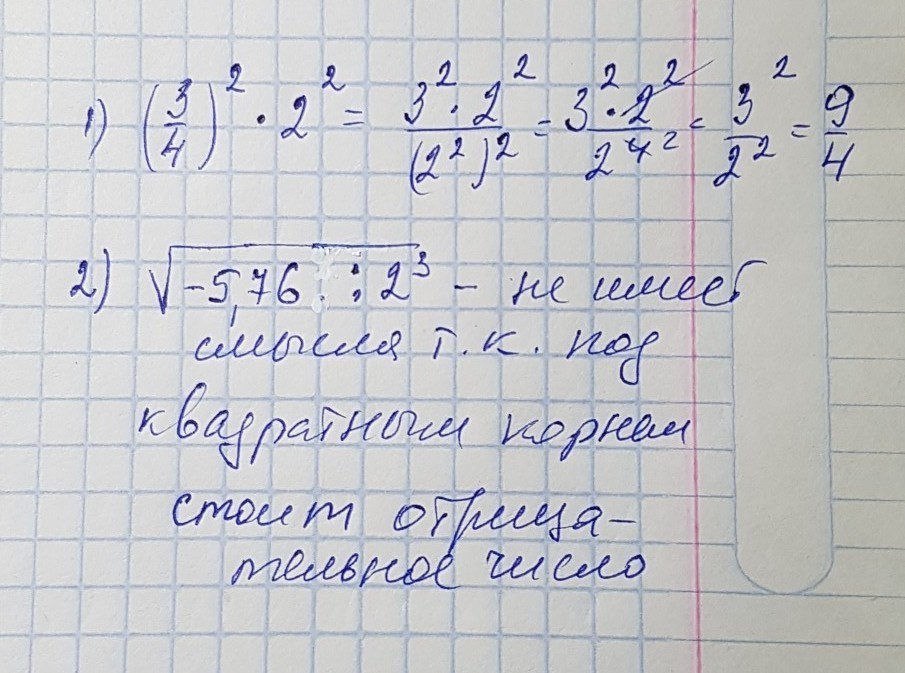 1) (3/4)² · 2² = 3² · 2²/(2²)² = 3² · 2²/2⁴ ² = 3²/2² = 9/4
2) √-5,76 : 2³ - не имеет
смысля т.к. под
квадратным корнем
стоит отрица-
тельное число